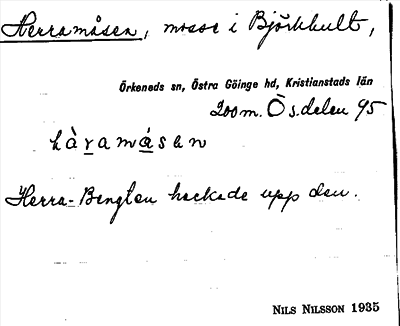 Herramåsen, mosse i Björkhult,
Örkeneds sn, Östra Göinge hd, Kristianstads län
200 m. Ö s.delen 95
hàramásen
Herra-Bengten hackade upp den.
NILS NILSSON 1935